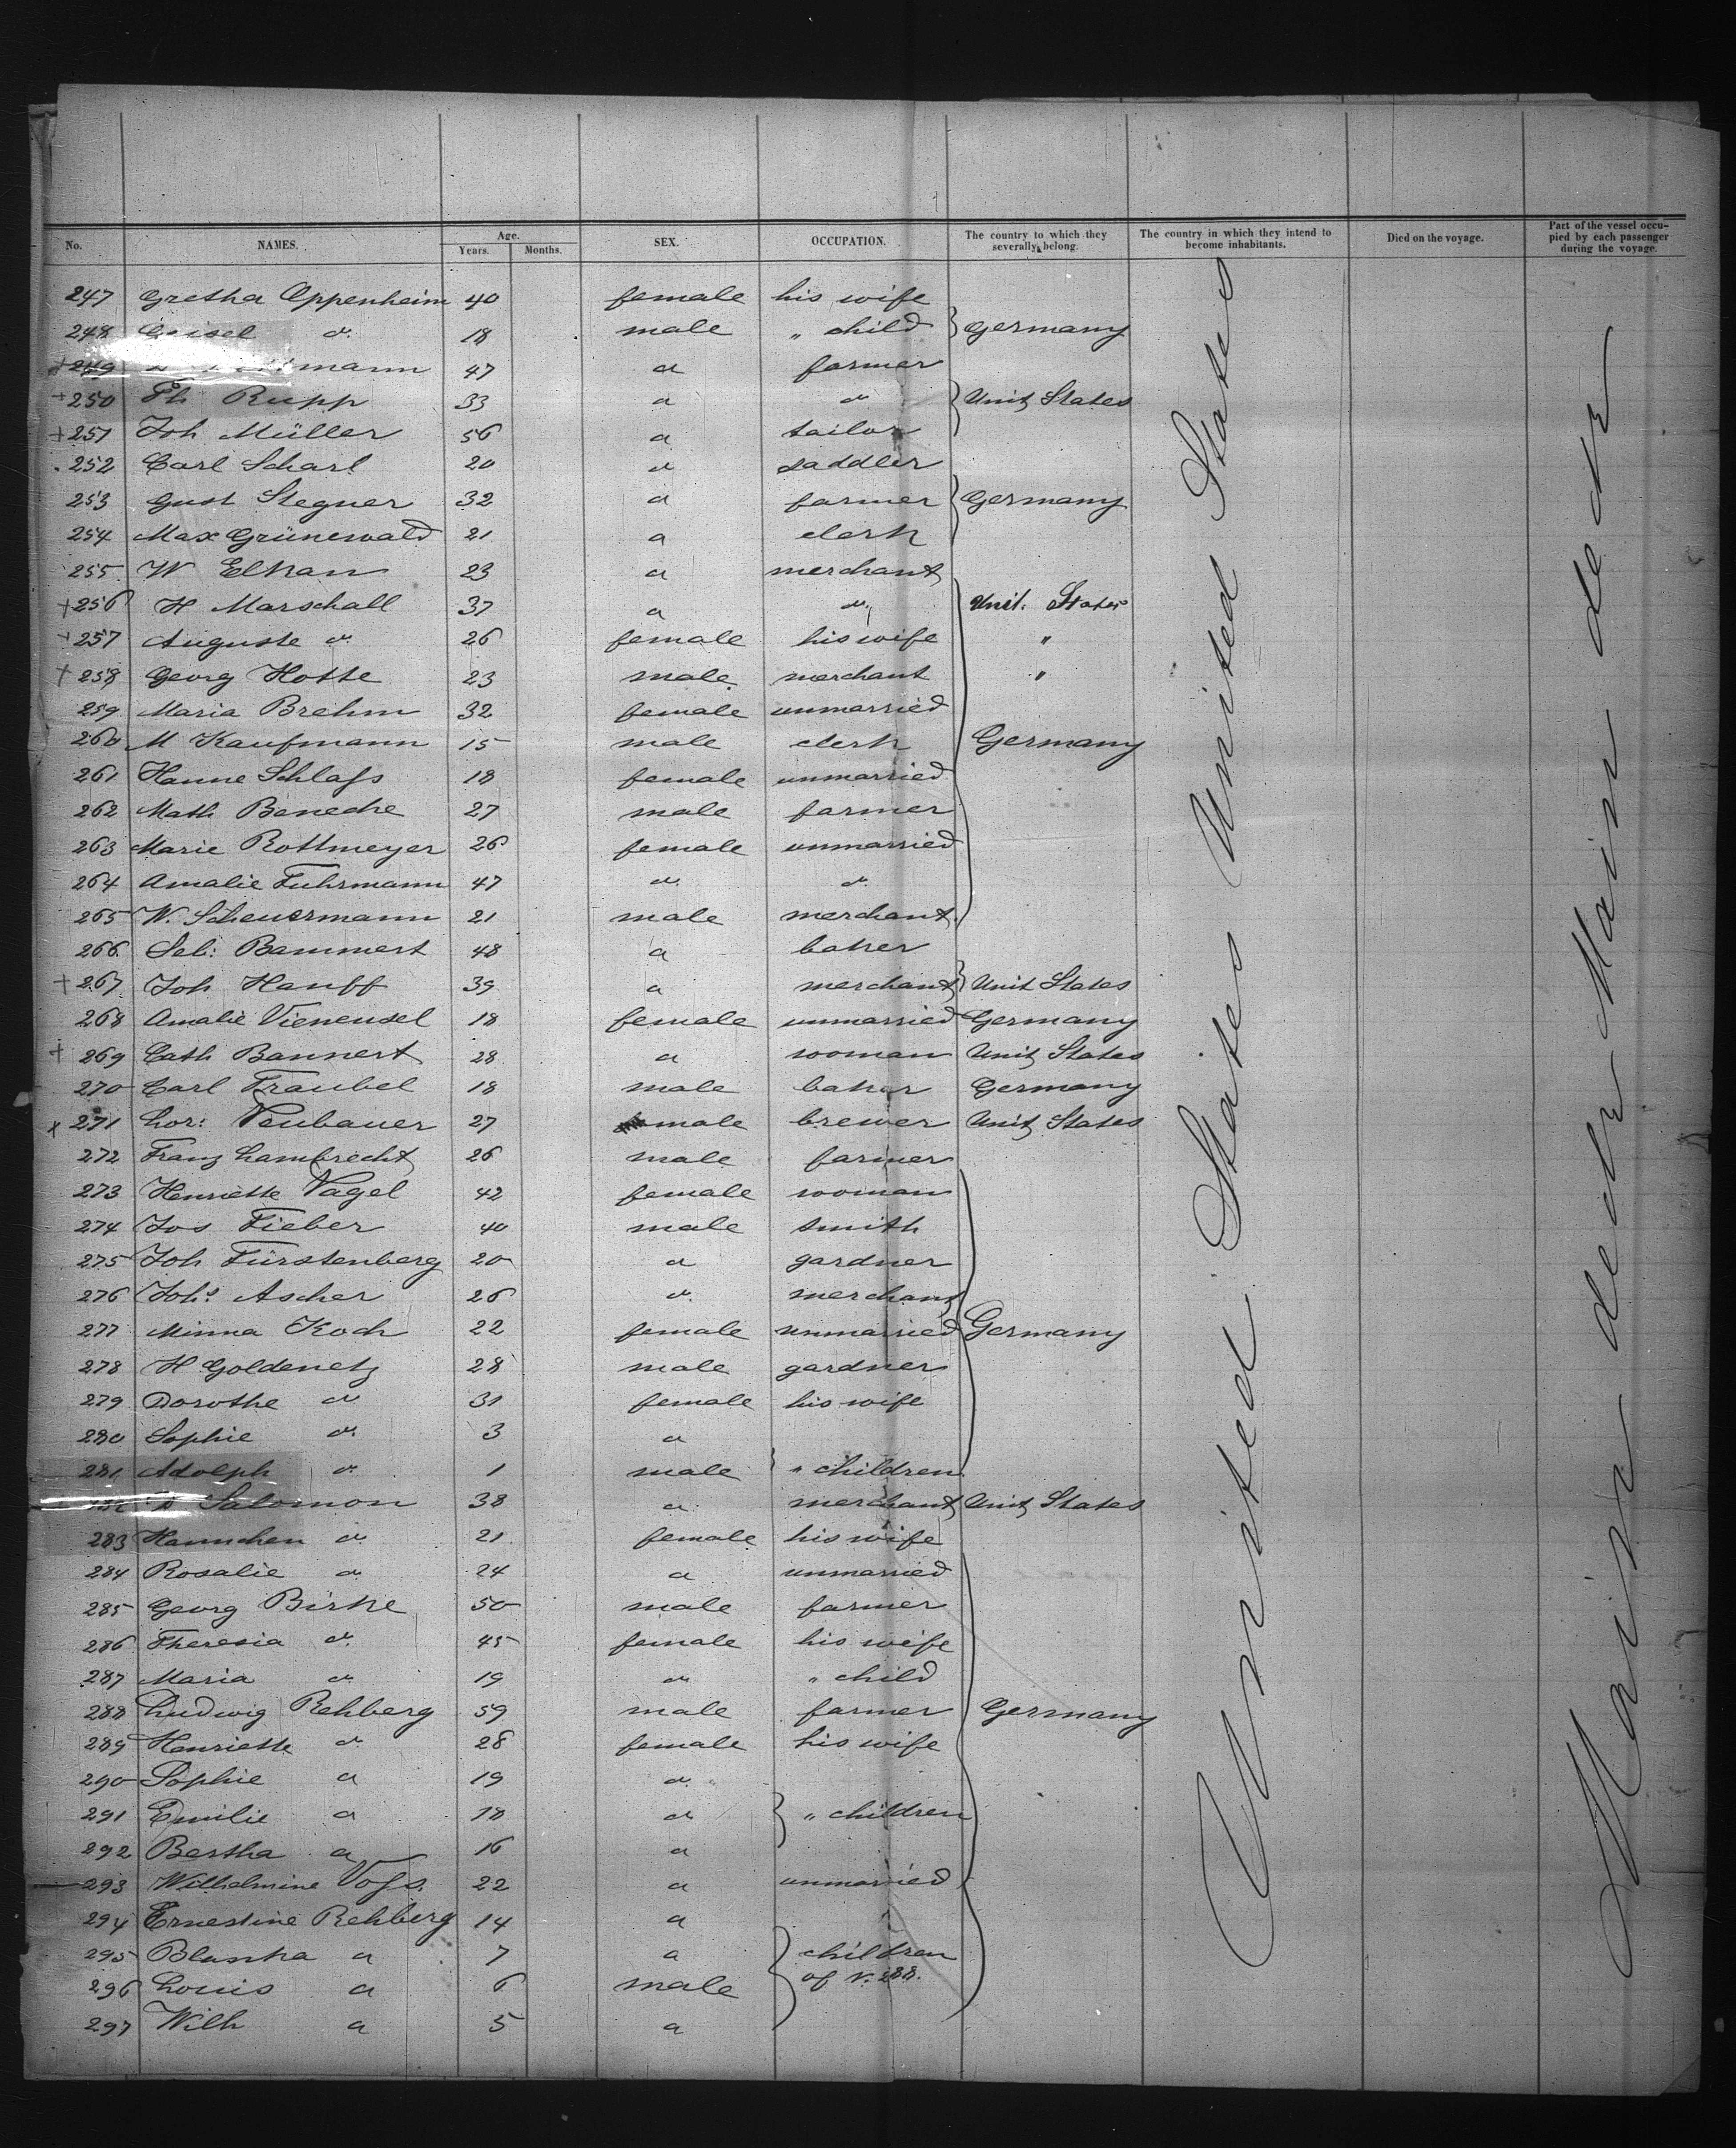 No. NAMES. Age. Years. Months. SEX. OCCUPATION. The country to which they severally belong. The country in which they intend to become inhabitants. Died on the voyage. Part of the vessel occupied by each passenger during the voyage.
247 Gretha Oppenheim 40 female his wife
248 Geisel do 18 male " child } Germany
+249 mann 47 do farmer
+250 Th Rupp 33 do do } Unit States
+251 Joh Müller 56 do tailor
252 Carl Scharl 20 do saddler
253 Gust Stegner 32 do farmer } Germany
254 Max Grünewald 21 do clerk
255 W Elkan 23 do merchant
+256 H Marschall 37 do do Unit. States
+257 Auguste do 26 female his wife "
+258 Georg Hotte 23 male merchant "
259 Maria Brehm 32 female unmarried
260 M Kaufmann 15 male clerk Germany
261 Hanne Schlafs 18 female unmarried
262 Math Benecke 27 male farmer
263 Marie Rottmeyer 26 female unmarried
264 Amalie Fuhrmann 47 do do
265 W. Scheuermann 21 male merchant
266 Seb: Bammert 48 do baker
+267 Joh Hanff 39 do merchant } Unit States
268 Amalie Vieneusel 18 female unmarried Germany
+269 Cath Bannert 28 do woman Unit States
270 Carl Traubel 18 male baker Germany
x271 Lor: Neubauer 27 male brewer Unit States
272 Franz Lambrecht 26 male farmer
273 Henriette Nagel 42 female woman
274 Jos Fieber 40 male smith
275 Joh Fürstenberg 20 do gardner
276 Johs Ascher 26 do merchant
277 Minna Koch 22 female unmarried Germany
278 H Goldenetz 28 male gardner
279 Dorothe do 31 female his wife
280 Sophie do 3 do
281 Adolph do 1 male } " children
Salomon 38 do merchant Unit States
283 Hannchen do 21 female his wife
284 Rosalie do 24 do unmarried
285 Georg Birke 50 male farmer
286 Theresia do 45 female his wife
287 Maria do 19 do " child
288 Ludwig Rehberg 59 male farmer Germany
289 Henriette do 28 female his wife
290 Sophie do 19 do
291 Emilie do 18 do } " children
292 Bertha do 16 do
293 Wilhelmine Vofs 22 do unmarried
294 Ernestine Rehberg 14 do
295 Blanka do 7 do } children
296 Louis do 6 male of N. 288.
297 Wilh do 5 do
United States United States
Main deck Main deck